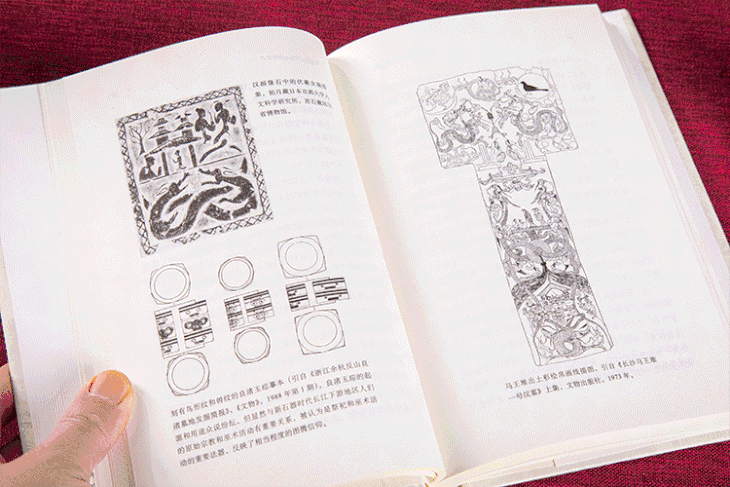 汉画像石中的伏羲女娲图
象,拓片藏日本京都大学人
文科学研究所,原石藏山东
省博物馆。
刻有鸟形纹和兽纹的良渚玉琮摹本(引自《浙江余杭反山良
渚墓地发掘简报》,《文物》,1988年第1期),良渚玉琮的起
源和用途众说纷纭,但显然与新石器时代长江下游地区人们
的原始宗教和巫术活动有重要关系,被认为是祭祀和巫术活
动的重要法器,反映了相当程度的图腾信仰。
马王堆出土彩绘帛画线描图,引自《长沙马王堆
一号汉墓》上集,文物出版社,1973年。